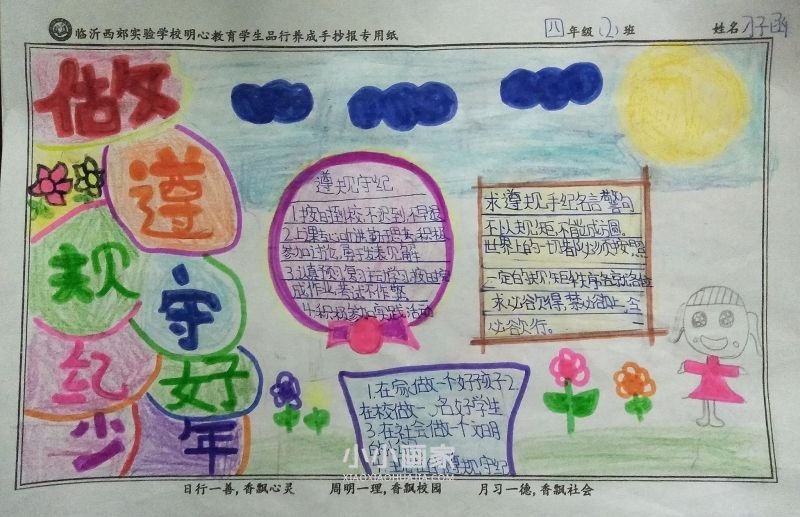 临沂西郊实验学校明心教育学生品行养成手抄报专用纸
四年级(2)班
姓名
做
遵
规
守
纪
好
少
年
遵规守纪
1.按时到校,不迟到,不早退
2.上课专心听讲勤于思考,积极
参加讨论,勇于发表见解
3.认真预习复习
成作业,考试不作弊
4.积极参加实践活动
求遵规守纪名言警句
不以规矩,不能成方圆。
世界上的一切都必须按照
一定的规矩秩序各就各位
求必欲得,禁必欲止,令
必欲行。
1.在家做一个好孩子2.
在校做一名好学生
3.在社会做一个文明
遵规守纪
小小画家
XIAOXIAOHUAJIA.COM
日行一善,香飘心灵 周明一理,香飘校园 月习一德,香飘社会